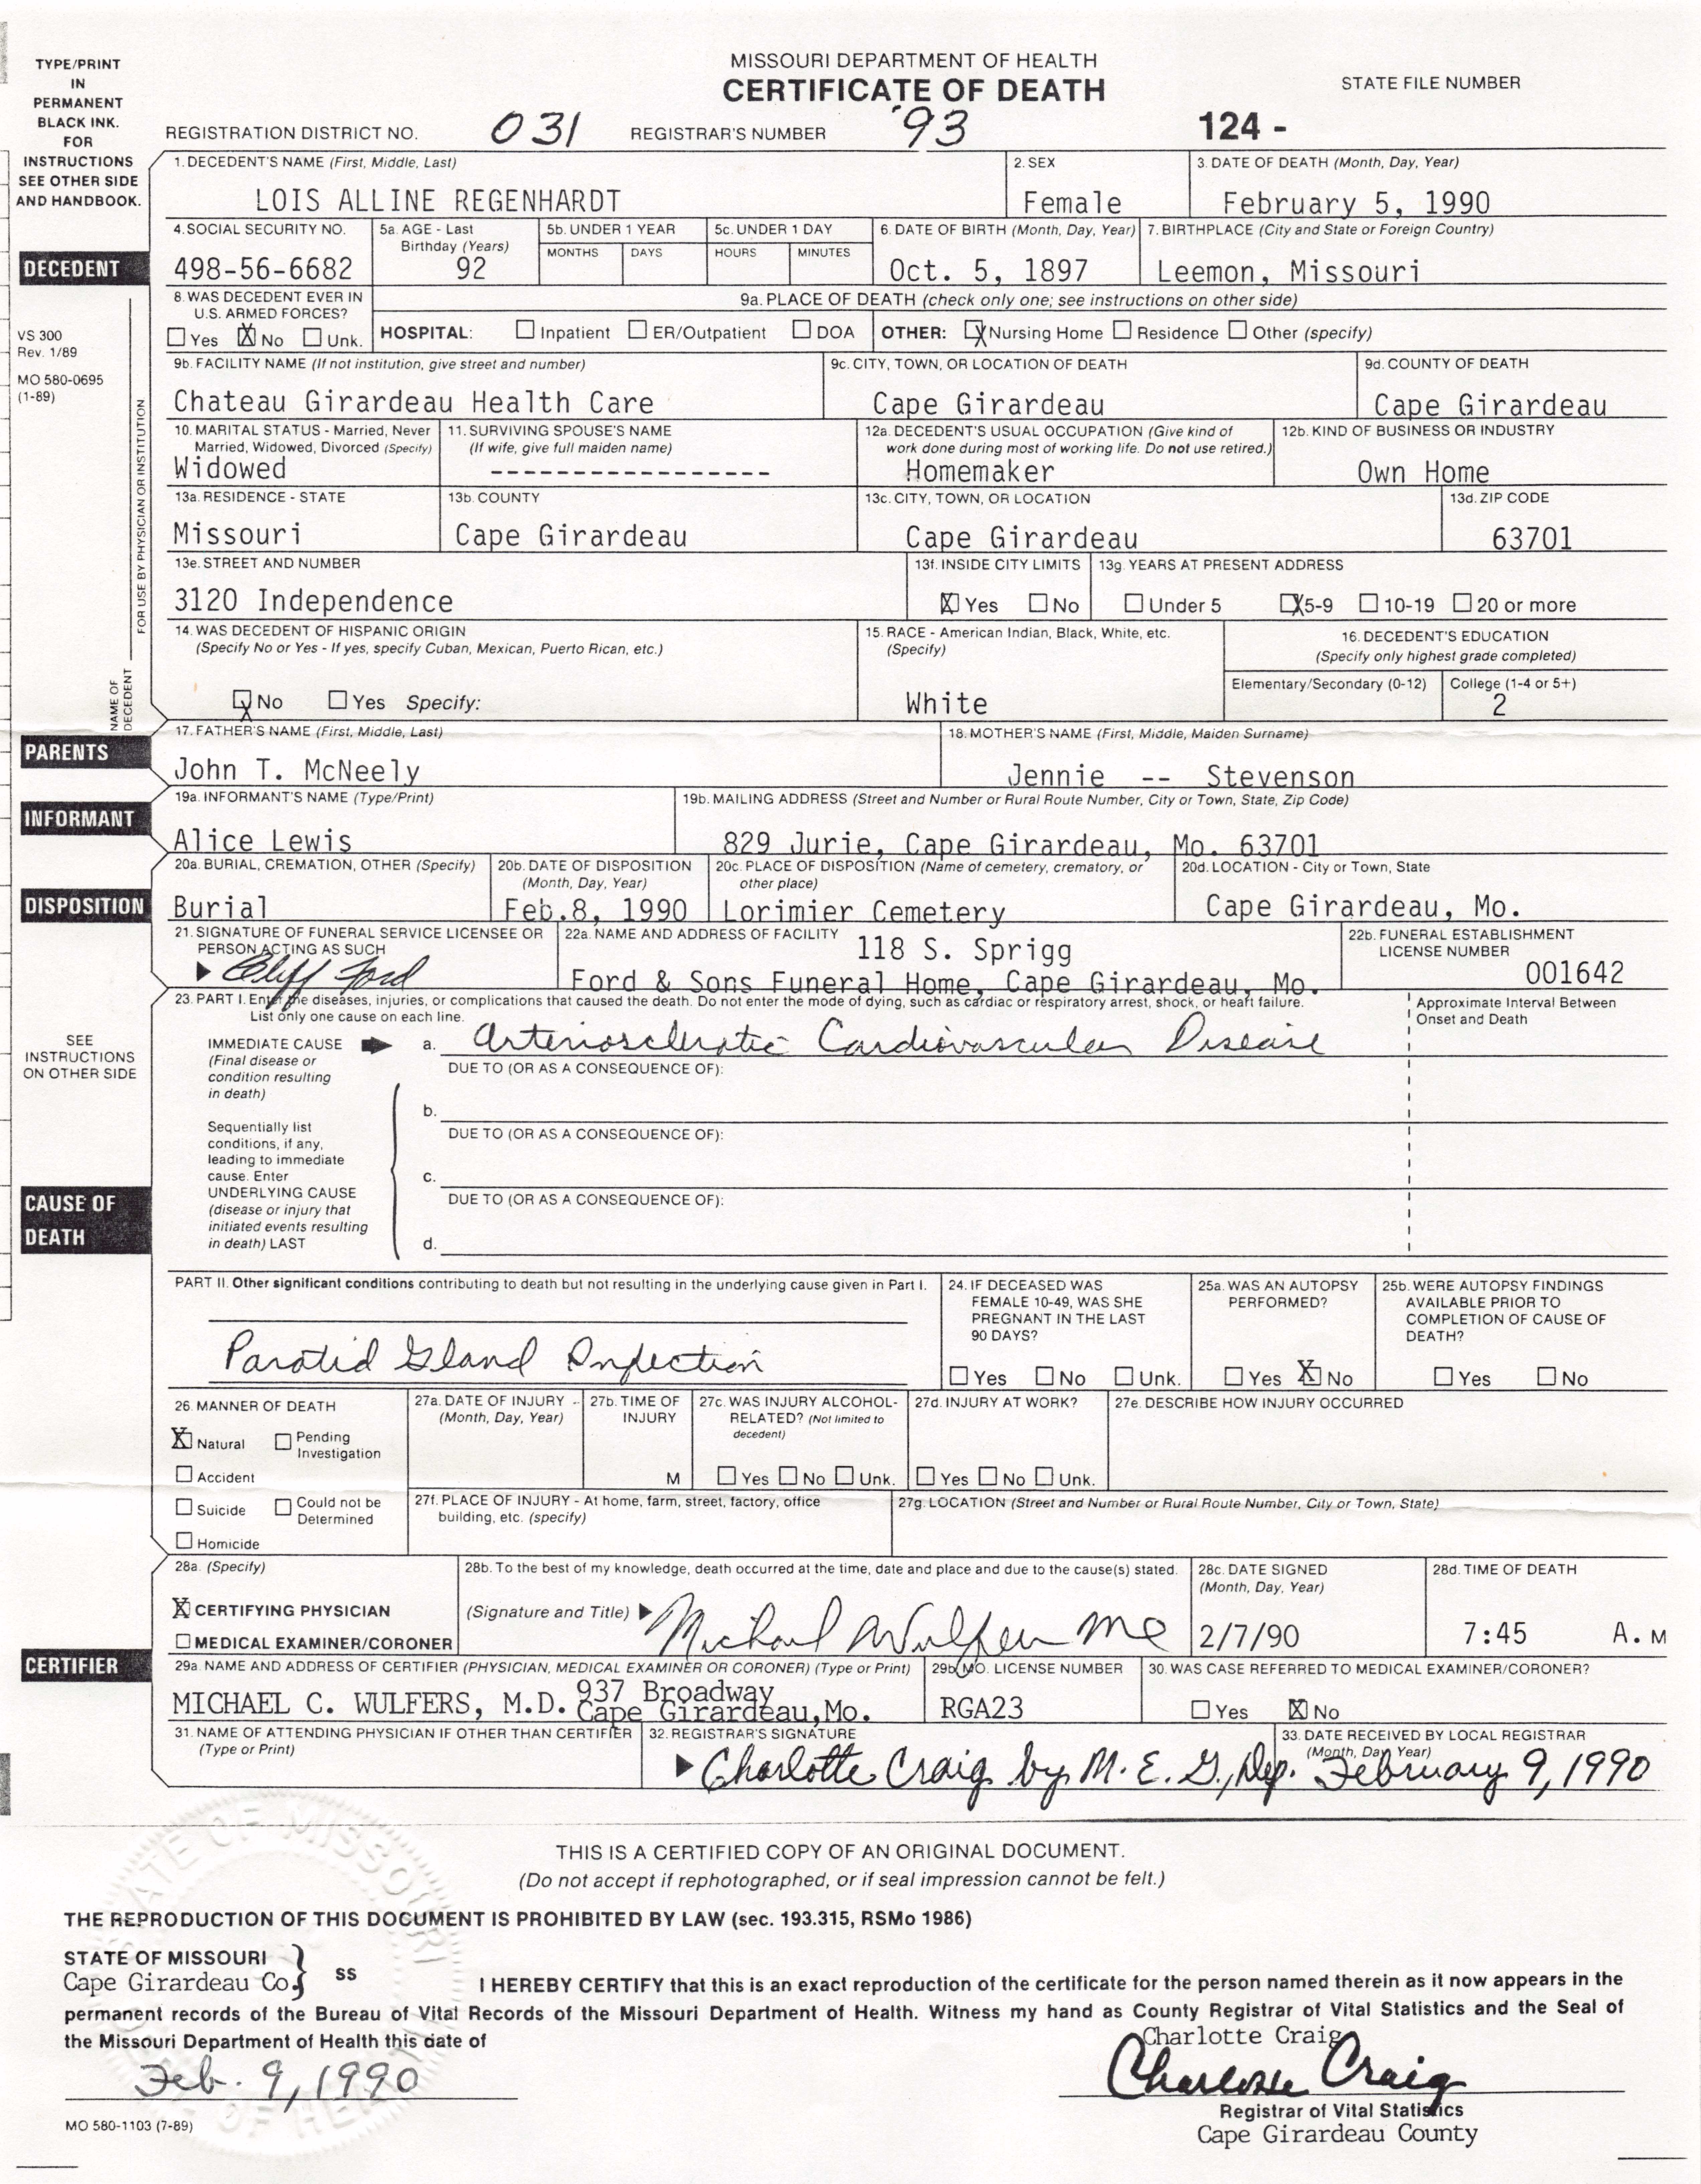 TYPE/PRINT
IN
PERMANENT
BLACK INK.
FOR
INSTRUCTIONS
SEE OTHER SIDE
AND HANDBOOK.
MISSOURI DEPARTMENT OF HEALTH
CERTIFICATE OF DEATH
STATE FILE NUMBER
REGISTRATION DISTRICT NO. 031 REGISTRAR'S NUMBER '93 124 -
1. DECEDENT'S NAME (First, Middle, Last) 2. SEX 3. DATE OF DEATH (Month, Day, Year)
LOIS ALLINE REGENHARDT Female February 5, 1990
DECEDENT
4. SOCIAL SECURITY NO. 5a. AGE - Last Birthday (Years) 5b. UNDER 1 YEAR 5c. UNDER 1 DAY 6. DATE OF BIRTH (Month, Day, Year) 7. BIRTHPLACE (City and State or Foreign Country)
MONTHS DAYS HOURS MINUTES
498-56-6682 92 Oct. 5, 1897 Leemon, Missouri
8. WAS DECEDENT EVER IN U.S. ARMED FORCES? 9a. PLACE OF DEATH (check only one; see instructions on other side)
Yes X No Unk. HOSPITAL: Inpatient ER/Outpatient DOA OTHER: X Nursing Home Residence Other (specify)
VS 300
Rev. 1/89
MO 580-0695
(1-89)
9b. FACILITY NAME (If not institution, give street and number) 9c. CITY, TOWN, OR LOCATION OF DEATH 9d. COUNTY OF DEATH
Chateau Girardeau Health Care Cape Girardeau Cape Girardeau
10. MARITAL STATUS - Married, Never Married, Widowed, Divorced (Specify) 11. SURVIVING SPOUSE'S NAME (If wife, give full maiden name) 12a. DECEDENT'S USUAL OCCUPATION (Give kind of work done during most of working life. Do not use retired.) 12b. KIND OF BUSINESS OR INDUSTRY
Widowed ----------------- Homemaker Own Home
13a. RESIDENCE - STATE 13b. COUNTY 13c. CITY, TOWN, OR LOCATION 13d. ZIP CODE
Missouri Cape Girardeau Cape Girardeau 63701
13e. STREET AND NUMBER 13f. INSIDE CITY LIMITS 13g. YEARS AT PRESENT ADDRESS
3120 Independence X Yes No Under 5 X 5-9 10-19 20 or more
FOR USE BY PHYSICIAN OR INSTITUTION
NAME OF DECEDENT
14. WAS DECEDENT OF HISPANIC ORIGIN (Specify No or Yes - If yes, specify Cuban, Mexican, Puerto Rican, etc.) 15. RACE - American Indian, Black, White, etc. (Specify) 16. DECEDENT'S EDUCATION (Specify only highest grade completed)
Elementary/Secondary (0-12) College (1-4 or 5+)
X No Yes Specify: White 2
PARENTS
17. FATHER'S NAME (First, Middle, Last) 18. MOTHER'S NAME (First, Middle, Maiden Surname)
John T. McNeely Jennie -- Stevenson
INFORMANT
19a. INFORMANT'S NAME (Type/Print) 19b. MAILING ADDRESS (Street and Number or Rural Route Number, City or Town, State, Zip Code)
Alice Lewis 829 Jurie, Cape Girardeau, Mo. 63701
DISPOSITION
20a. BURIAL, CREMATION, OTHER (Specify) 20b. DATE OF DISPOSITION (Month, Day, Year) 20c. PLACE OF DISPOSITION (Name of cemetery, crematory, or other place) 20d. LOCATION - City or Town, State
Burial Feb.8, 1990 Lorimier Cemetery Cape Girardeau, Mo.
21. SIGNATURE OF FUNERAL SERVICE LICENSEE OR PERSON ACTING AS SUCH 22a. NAME AND ADDRESS OF FACILITY 22b. FUNERAL ESTABLISHMENT LICENSE NUMBER
118 S. Sprigg
Cliff Ford Ford & Sons Funeral Home, Cape Girardeau, Mo. 001642
23. PART I. Enter the diseases, injuries, or complications that caused the death. Do not enter the mode of dying, such as cardiac or respiratory arrest, shock, or heart failure.
List only one cause on each line.
Approximate Interval Between
Onset and Death
SEE
INSTRUCTIONS
ON OTHER SIDE
CAUSE OF
DEATH
IMMEDIATE CAUSE
(Final disease or
condition resulting
in death)
a. Arteriosclerotic Cardiovascular Disease
DUE TO (OR AS A CONSEQUENCE OF):
b.
Sequentially list
conditions, if any,
leading to immediate
cause. Enter
UNDERLYING CAUSE
(disease or injury that
initiated events resulting
in death) LAST
DUE TO (OR AS A CONSEQUENCE OF):
c.
DUE TO (OR AS A CONSEQUENCE OF):
d.
PART II. Other significant conditions contributing to death but not resulting in the underlying cause given in Part I.
Parotid Gland Infection
24. IF DECEASED WAS
FEMALE 10-49, WAS SHE
PREGNANT IN THE LAST
90 DAYS?
Yes No Unk.
25a. WAS AN AUTOPSY
PERFORMED?
Yes X No
25b. WERE AUTOPSY FINDINGS
AVAILABLE PRIOR TO
COMPLETION OF CAUSE OF
DEATH?
Yes No
26. MANNER OF DEATH
X Natural Pending Investigation
Accident
Suicide Could not be Determined
Homicide
27a. DATE OF INJURY (Month, Day, Year)
27b. TIME OF INJURY
M
27c. WAS INJURY ALCOHOL-RELATED? (Not limited to decedent)
Yes No Unk.
27d. INJURY AT WORK?
Yes No Unk.
27e. DESCRIBE HOW INJURY OCCURRED
27f. PLACE OF INJURY - At home, farm, street, factory, office building, etc. (specify)
27g. LOCATION (Street and Number or Rural Route Number, City or Town, State)
CERTIFIER
28a. (Specify)
X CERTIFYING PHYSICIAN
MEDICAL EXAMINER/CORONER
28b. To the best of my knowledge, death occurred at the time, date and place and due to the cause(s) stated.
(Signature and Title) Michael Wulfers MD
28c. DATE SIGNED
(Month, Day, Year)
2/7/90
28d. TIME OF DEATH
7:45 A. M
29a. NAME AND ADDRESS OF CERTIFIER (PHYSICIAN, MEDICAL EXAMINER OR CORONER) (Type or Print) 29b. MO. LICENSE NUMBER 30. WAS CASE REFERRED TO MEDICAL EXAMINER/CORONER?
MICHAEL C. WULFERS, M.D. 937 Broadway
Cape Girardeau,Mo. RGA23 Yes X No
31. NAME OF ATTENDING PHYSICIAN IF OTHER THAN CERTIFIER
(Type or Print)
32. REGISTRAR'S SIGNATURE
Charlotte Craig by M. E. G., Dep.
33. DATE RECEIVED BY LOCAL REGISTRAR
(Month, Day, Year)
February 9, 1990
STATE OF MISSOURI
THIS IS A CERTIFIED COPY OF AN ORIGINAL DOCUMENT.
(Do not accept if rephotographed, or if seal impression cannot be felt.)
THE REPRODUCTION OF THIS DOCUMENT IS PROHIBITED BY LAW (sec. 193.315, RSMo 1986)
STATE OF MISSOURI
Cape Girardeau Co. } SS
I HEREBY CERTIFY that this is an exact reproduction of the certificate for the person named therein as it now appears in the
permanent records of the Bureau of Vital Records of the Missouri Department of Health. Witness my hand as County Registrar of Vital Statistics and the Seal of
the Missouri Department of Health this date of
Charlotte Craig
Feb. 9, 1990
Charlotte Craig
Registrar of Vital Statistics
Cape Girardeau County
MO 580-1103 (7-89)